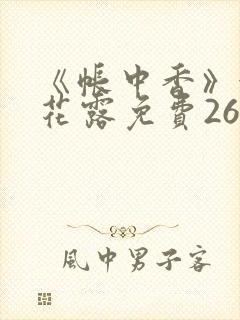 《帳中香》
花露免費26
風中男子客